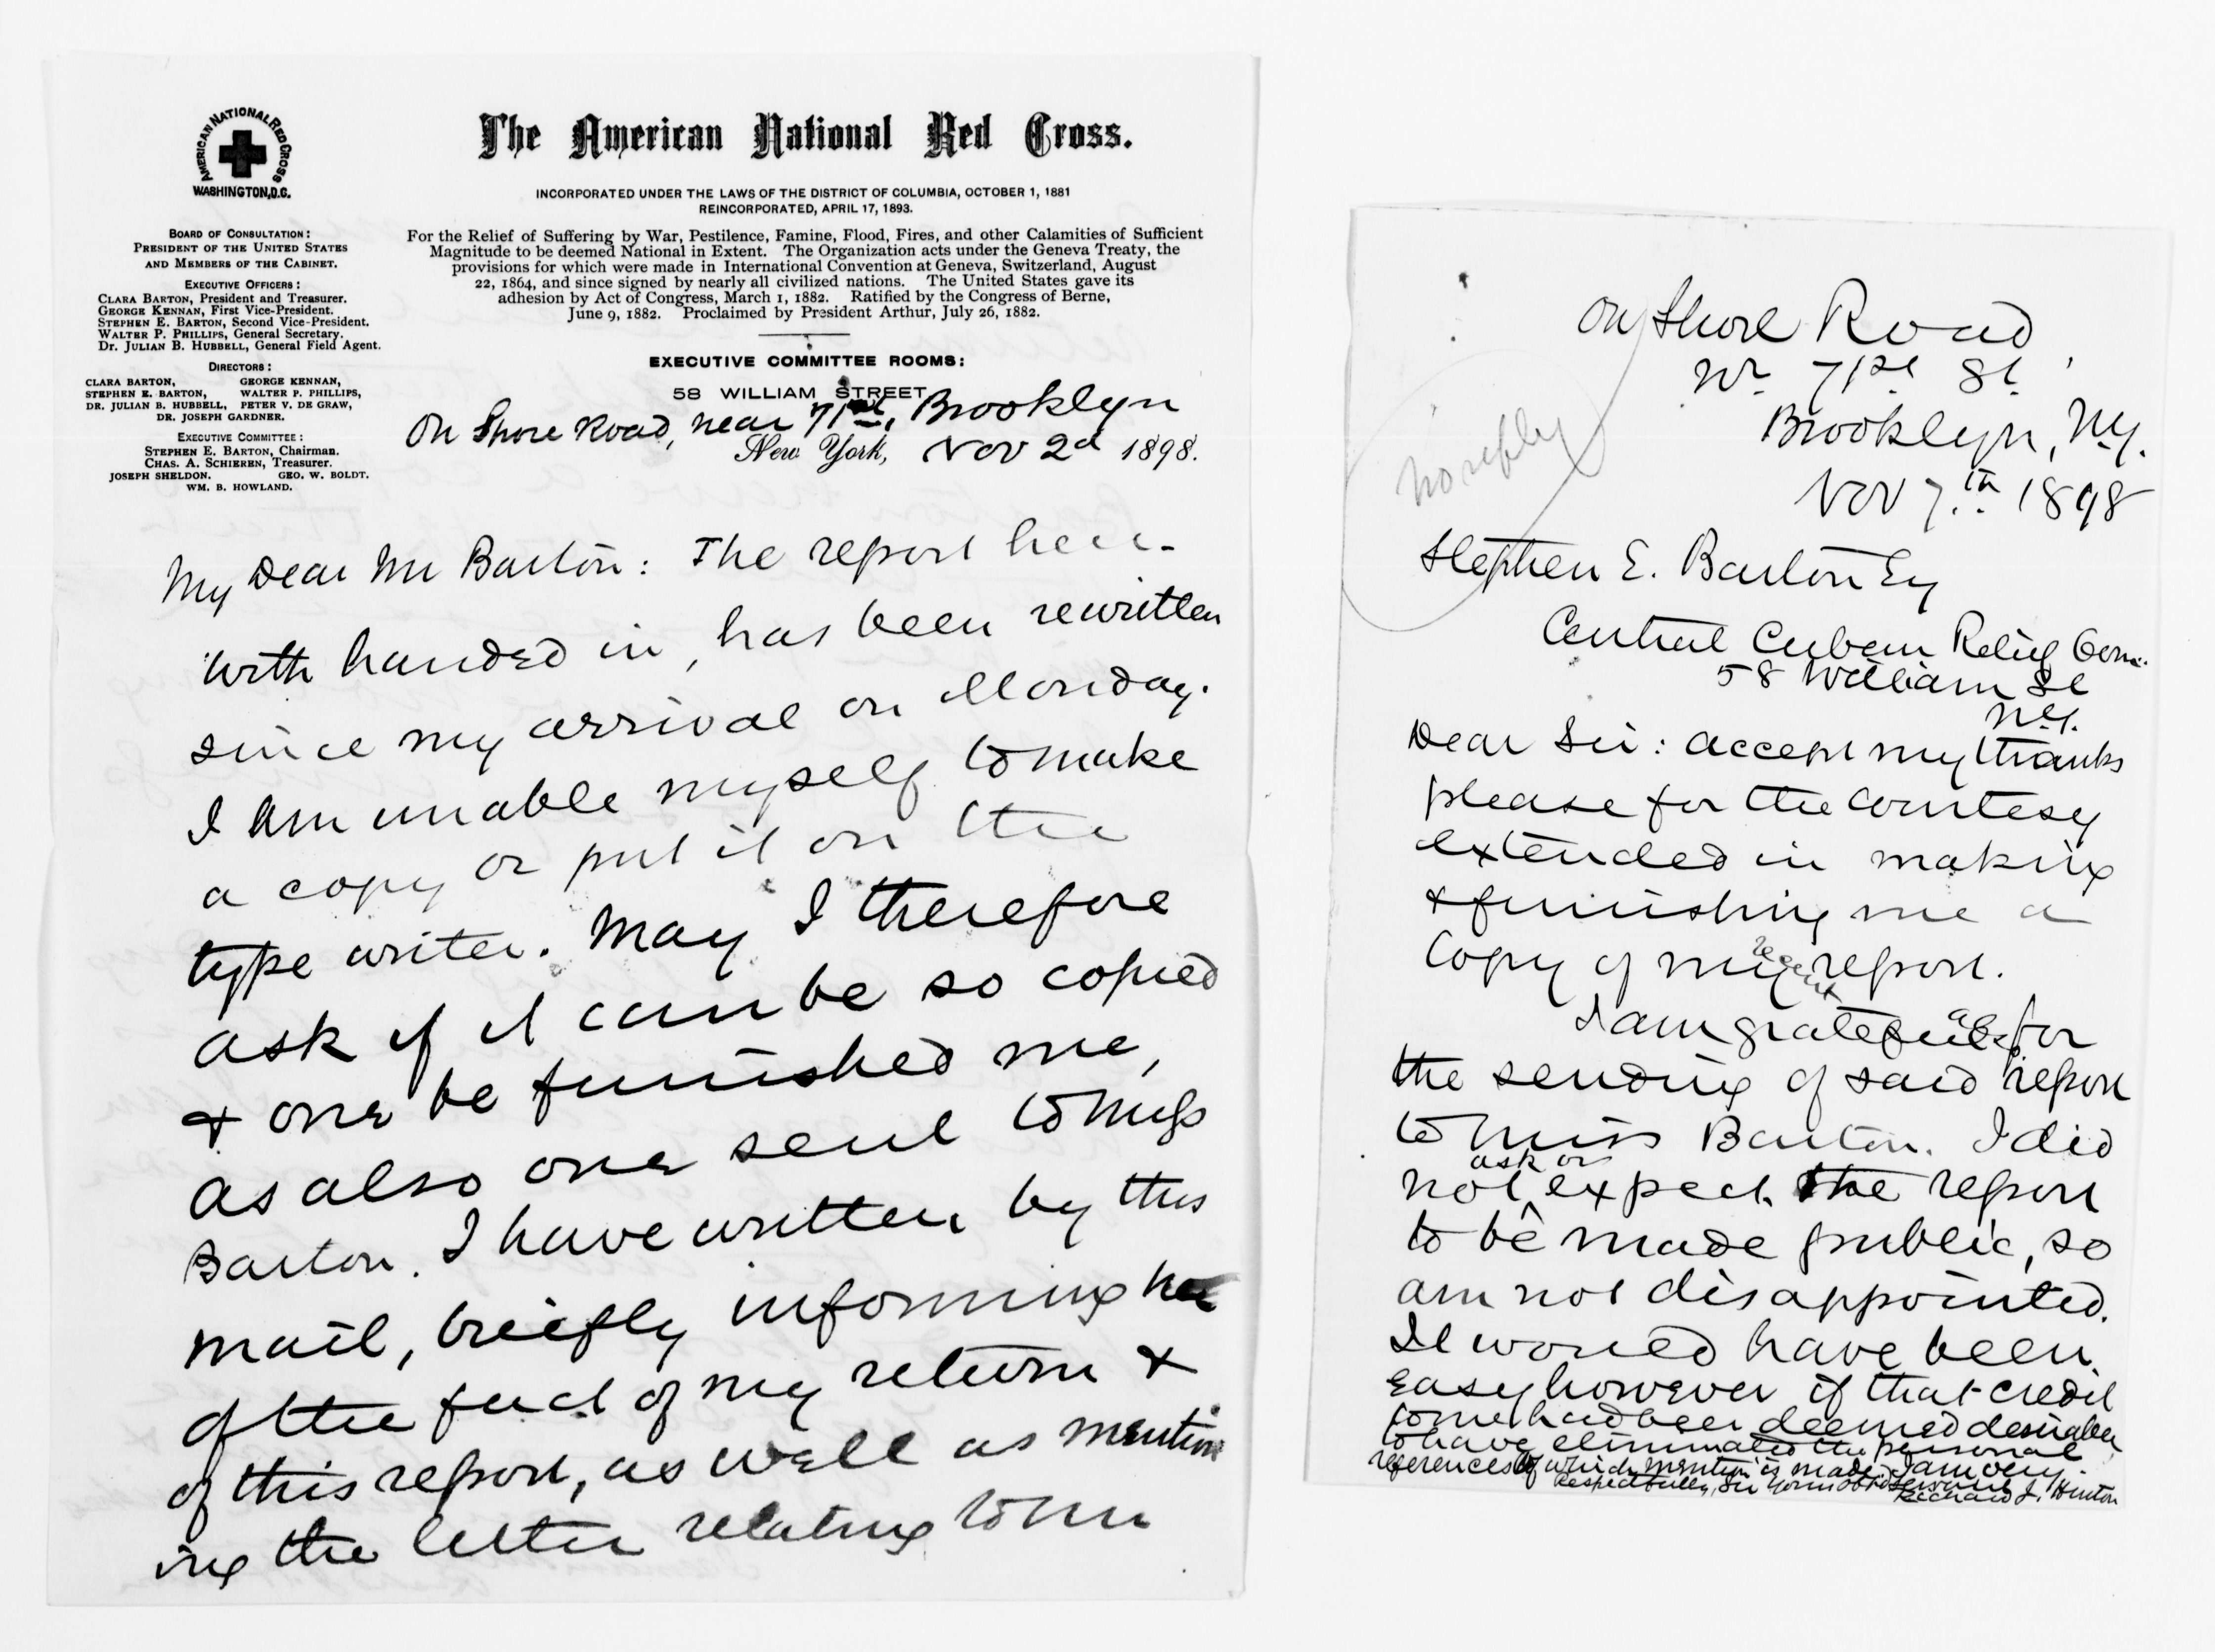 AMERICAN NATIONAL RED CROSS
WASHINGTON, D.C.
The American National Red Cross.
INCORPORATED UNDER THE LAWS OF THE DISTRICT OF COLUMBIA, OCTOBER 1, 1881
REINCORPORATED, APRIL 17, 1893.
For the Relief of Suffering by War, Pestilence, Famine, Flood, Fires, and other Calamities of Sufficient
Magnitude to be deemed National in Extent. The Organization acts under the Geneva Treaty, the
provisions for which were made in International Convention at Geneva, Switzerland, August
22, 1864, and since signed by nearly all civilized nations. The United States gave its
adhesion by Act of Congress, March 1, 1882. Ratified by the Congress of Berne,
June 9, 1882. Proclaimed by President Arthur, July 26, 1882.
BOARD OF CONSULTATION:
PRESIDENT OF THE UNITED STATES
AND MEMBERS OF THE CABINET.
EXECUTIVE OFFICERS:
CLARA BARTON, President and Treasurer.
GEORGE KENNAN, First Vice-President.
STEPHEN E. BARTON, Second Vice-President.
WALTER P. PHILLIPS, General Secretary.
Dr. JULIAN B. HUBBELL, General Field Agent.
DIRECTORS:
CLARA BARTON, GEORGE KENNAN,
STEPHEN E. BARTON, WALTER P. PHILLIPS,
DR. JULIAN B. HUBBELL, PETER V. DE GRAW,
DR. JOSEPH GARDNER.
EXECUTIVE COMMITTEE:
STEPHEN E. BARTON, Chairman.
CHAS. A. SCHIEREN, Treasurer.
JOSEPH SHELDON. GEO. W. BOLDT.
WM. B. HOWLAND.
EXECUTIVE COMMITTEE ROOMS:
58 WILLIAM STREET,
On Shore Road, near 71st, Brooklyn
New York, Nov 2d 1898.
My Dear Mr Barton: The report here-
with handed in, has been rewritten
since my arrival on Monday.
I am unable myself to make
a copy or put it on the
type writer. May I therefore
ask if it can be so copied
& one be furnished me,
as also one sent to Miss
Barton. I have written by this
mail, briefly informing her
of the fact of my return &
of this report, as well as mention
ing the letter relating to Mr
no reply
On Shore Road
Nr 71st St.
Brooklyn, N.Y.
Nov 7th 1898
Stephen E. Barton Esq
Central Cuban Relief Com.
58 William St
N.Y.
Dear Sir: accept my thanks
please for the courtesy
extended in making
& furnishing me a
copy of my recent report.
I am grateful also for
the sending of said report
to Miss Barton. I did
not ask or expect the report
to be made public, so
am not disappointed.
It would have been
easy however if that credit
to me had been deemed desirable
to have eliminated the personal
references of which mention is made. I am very
Respectfully, Sir Your obd Servant
Richard J. Hinton